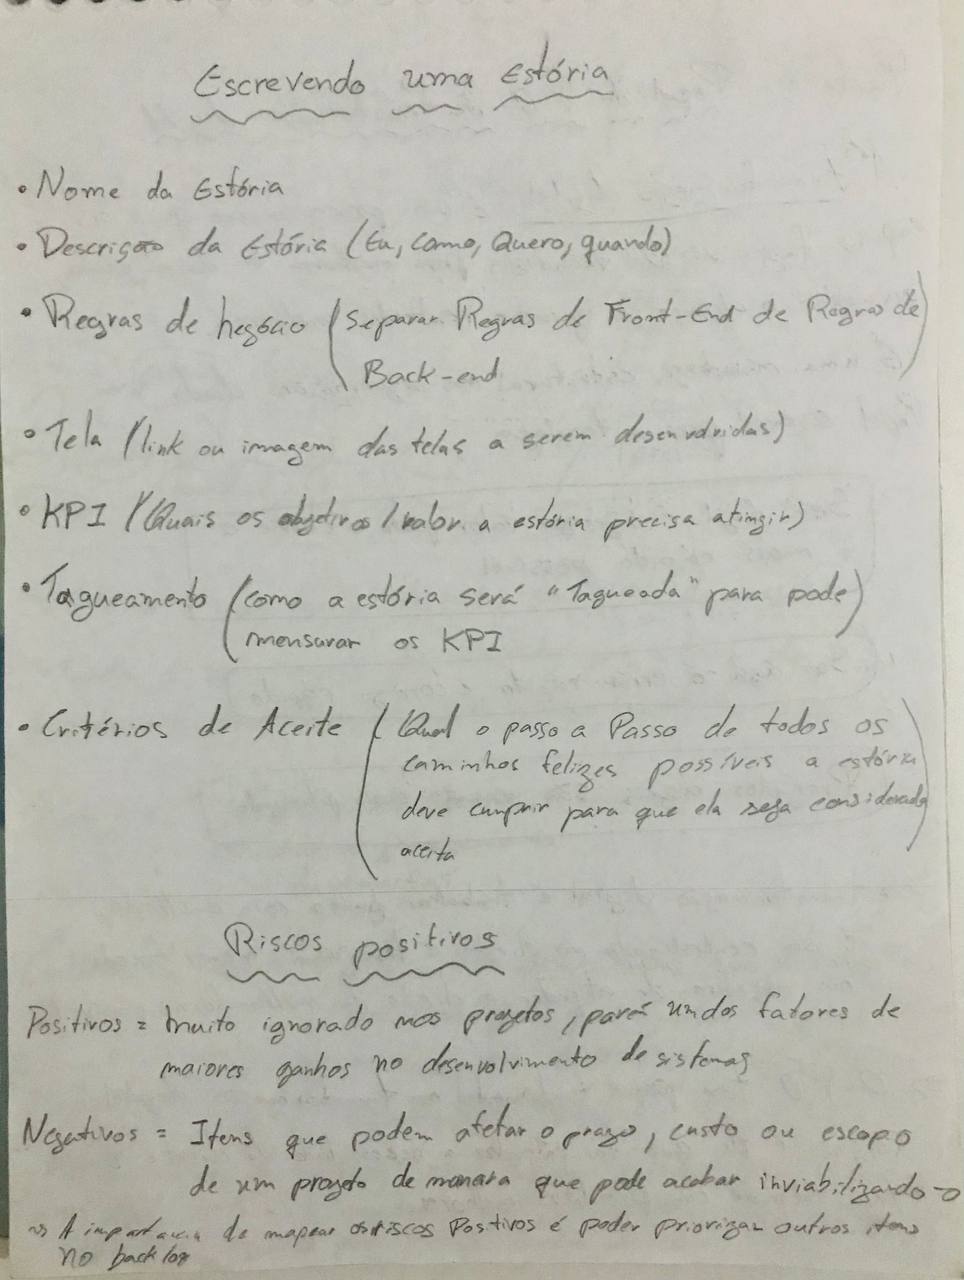 Escrevendo uma Estória
• Nome da Estória
• Descrição da Estória (Eu, Como, Quero, quando)
• Regras de negócio (Separar Regras de Front-End de Regras de
Back-end)
• Tela (link ou imagem das telas a serem desenvolvidas)
• KPI (Quais os objetivos / valor a estória precisa atingir)
• Tagueamento (como a estória será "Tagueada" para pode
mensurar os KPI)
• Critérios de Aceite (Qual o passo a Passo de todos os
caminhos felizes possíveis a estória
deve cumprir para que ela seja considerada
aceita)
Riscos positivos
Positivos = Muito ignorado nos projetos, fatores de
maiores ganhos no desenvolvimento de sistemas
Negativos = Itens que podem afetar o prazo, custo ou escopo
de um projeto de maneira que pode acabar inviabilizando-o
~> A importancia de mapear os riscos Positivos é poder priorizar outros itens
no backlog